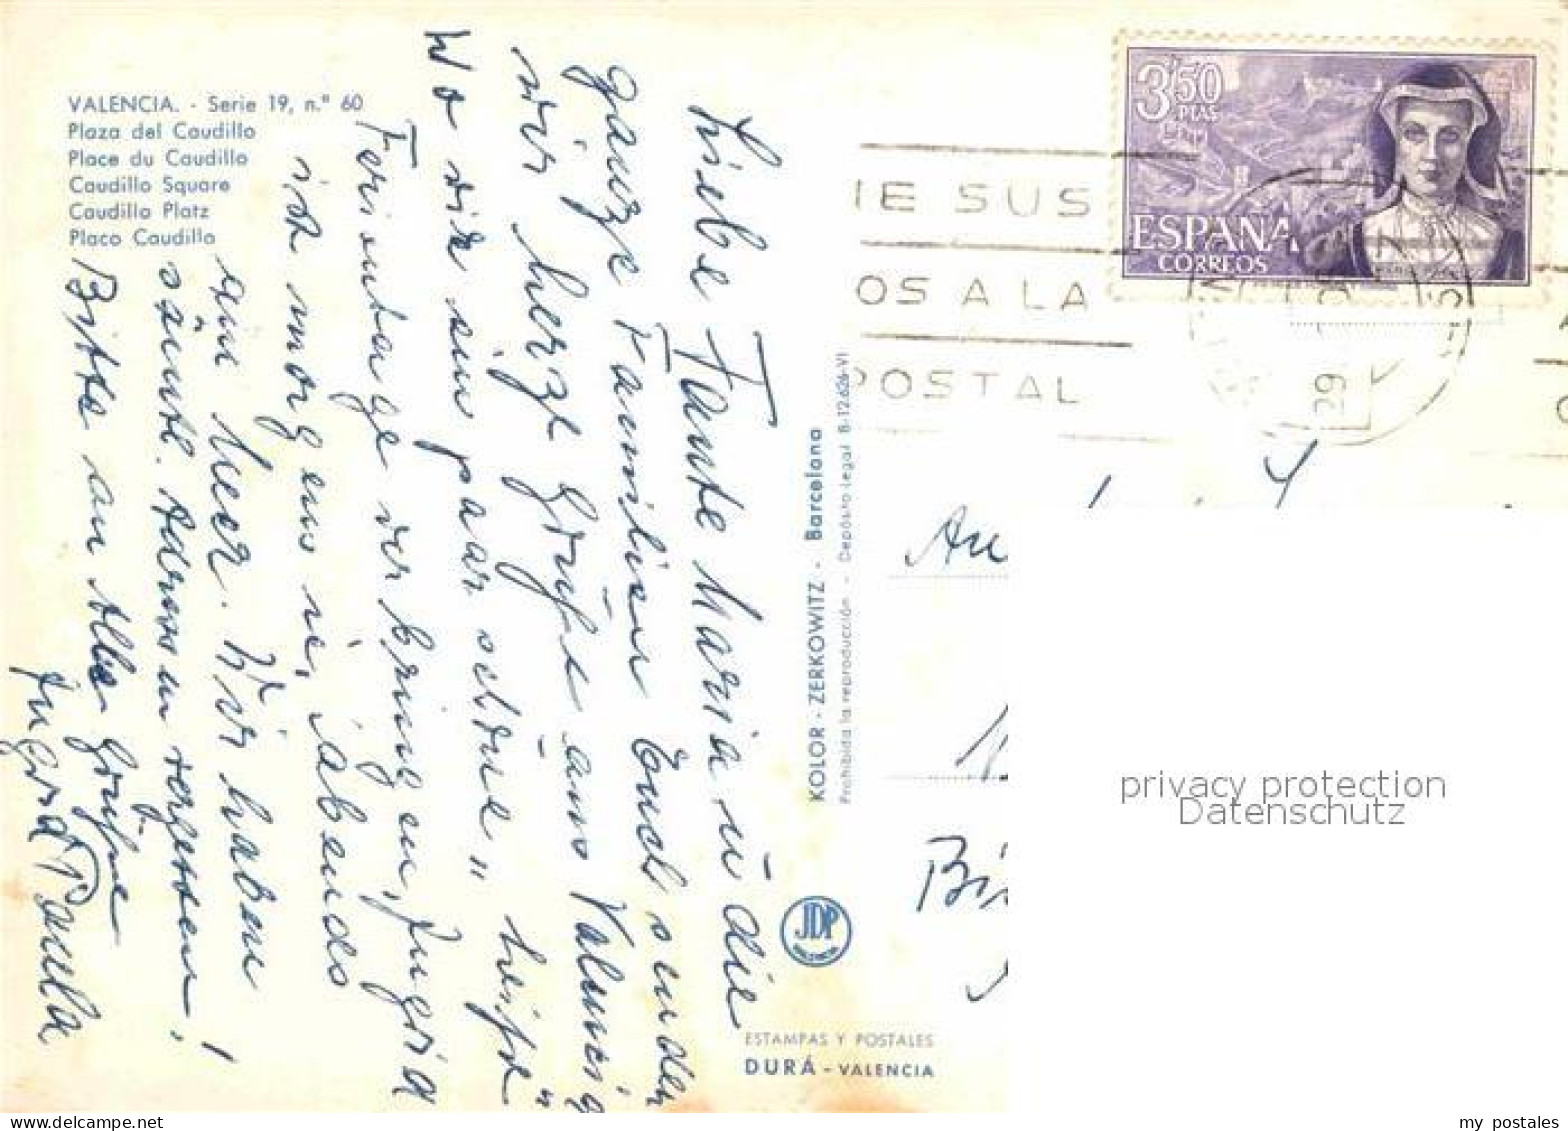 VALENCIA. - Serie 19, n.º 60
Plaza del Caudillo
Place du Caudillo
Caudillo Square
Caudillo Platz
Placo Caudillo
Liebe Tante Maria ü die
ganze Familien Euch senden
wir herzl Grüße aus Valencia
Wo wir ein paar schöne „heiße"
Ferientage verbringen, Ingrid
ist morgens ü. abends
am Meer. Wir haben
sämtl. Adressen vergessen!
Bitte an Alle Grüße
Ingrid Paula
KOLOR - ZERKOWITZ - Barcelona
Prohibida la reproducción - Depósito legal B-12.626-VI
JDP
VALENCIA
ESTAMPAS Y POSTALES
DURÁ - VALENCIA
3'50
PTAS
ESPAÑA
CORREOS
IE SUS
OS A LA
POSTAL
29
An
privacy protection
Datenschutz
my postales